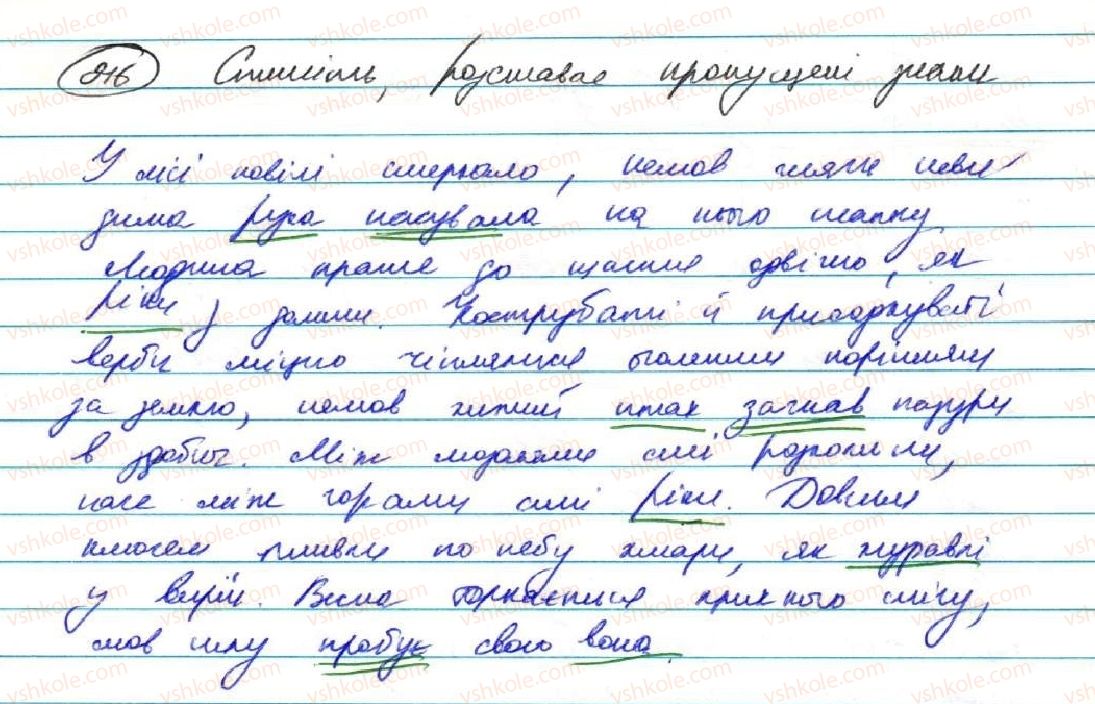 216 Спишіть, розставте пропущені знаки
У лісі повілі смеркало, немов чиясь неви
дима рука насувала на нього шапку
Людина прагне до щастя одвічно, як
ріки у долини. Кострубаті й приосадкуваті
верби міцно чіпляться оголеним корінням
за землю, немов хижий птах загнав пазури
в здобич. Між модринами сині розколини,
наче між горами сині ріки. Довгим
ключем пливли по небу хмари, як журавлі
у вирій. Весна торкається крихкого снігу,
мов силу пробує свою вона.